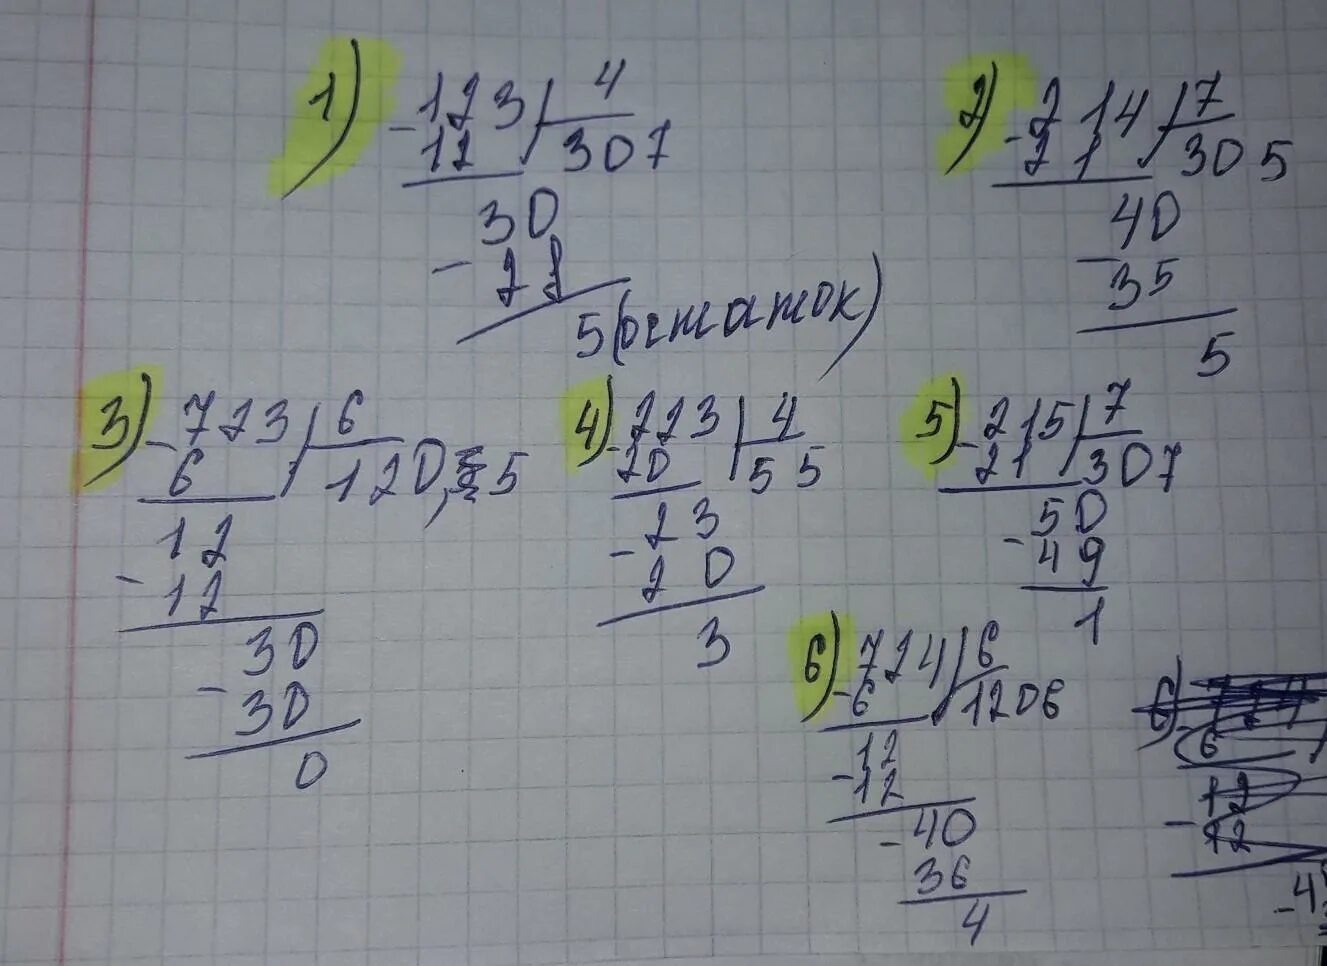 1) -123 | 4
12 | 307
30
- 21
5 (остаток)
2) -214 | 7
-21 | 305
40
- 35
5
3) -723 | 6
6 | 120,5
12
- 12
30
- 30
0
4) -223 | 4
20 | 55
- 23
20
3
5) -215 | 7
-21 | 307
- 50
49
1
6) -724 | 6
6 | 1206
- 12
12
- 40
36
4
6)
6
12
- 12
-4